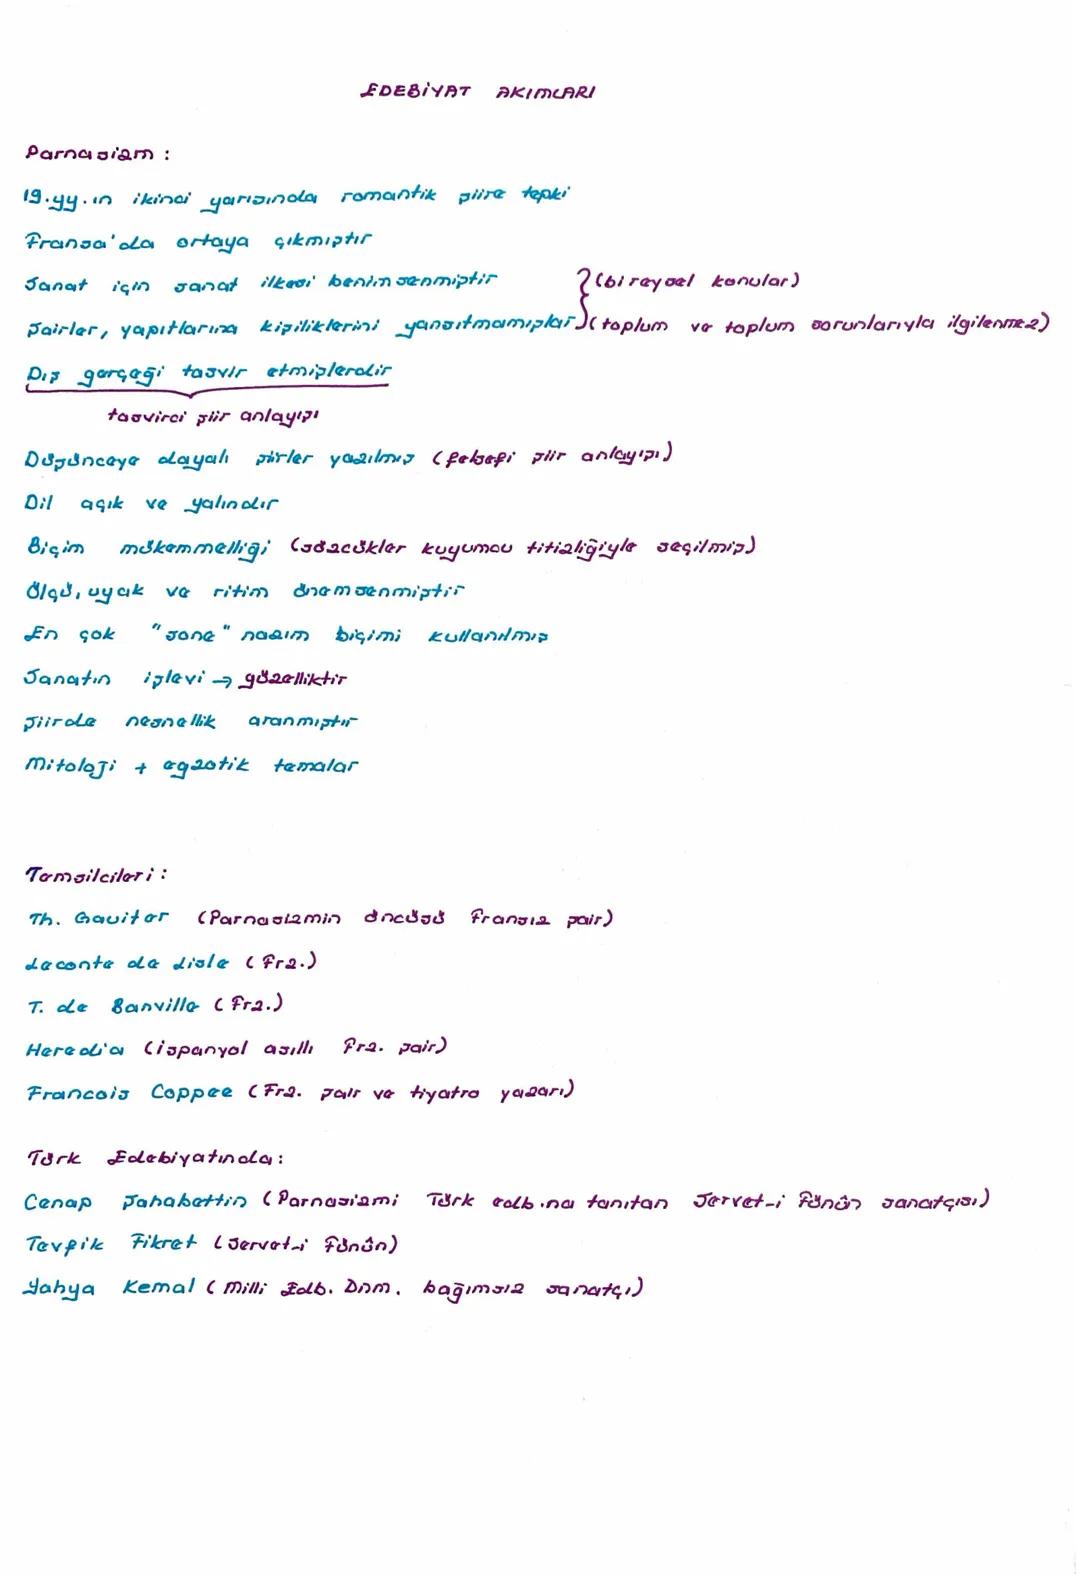 EDEBİYAT AKIMLARI
Parnasizm :
19.yy.ın ikinci yarısında romantik şiire tepki
Fransa'da ortaya çıkmıştır
Sanat için sanat ilkesi benimsenmiştir (bireysel konular)
Şairler, yapıtlarına kişiliklerini yansıtmamışlar (toplum ve toplum sorunlarıyla ilgilenmez)
Dış gerçeği tasvir etmişlerdir
tasvirci şiir anlayışı
Düşünceye dayalı şiirler yazılmış (felsefi şiir anlayışı)
Dil açık ve yalındır
Biçim mükemmelliği (sözcükler kuyumcu titizliğiyle seçilmiş)
Ölçü, uyak ve ritim önemsenmiştir
En çok "sone" nazım biçimi kullanılmış
Sanatın işlevi → güzelliktir
Şiirde nesnellik aranmıştır
Mitoloji + egzotik temalar
Temsilcileri :
Th. Gautier (Parnasizmin öncüsü Fransız şair)
Leconte de Lisle (Frz.)
T. de Banville (Frz.)
Heredia (ispanyol asıllı Frz. şair)
Francois Coppee (Frz. şair ve tiyatro yazarı)
Türk Edebiyatında :
Cenap Şahabettin (Parnasizmi Türk edb.na tanıtan Servet-i Fünûn sanatçısı)
Tevfik Fikret (Servet-i Fünûn)
Yahya Kemal (Milli Edb. Dnm. bağımsız sanatçı)